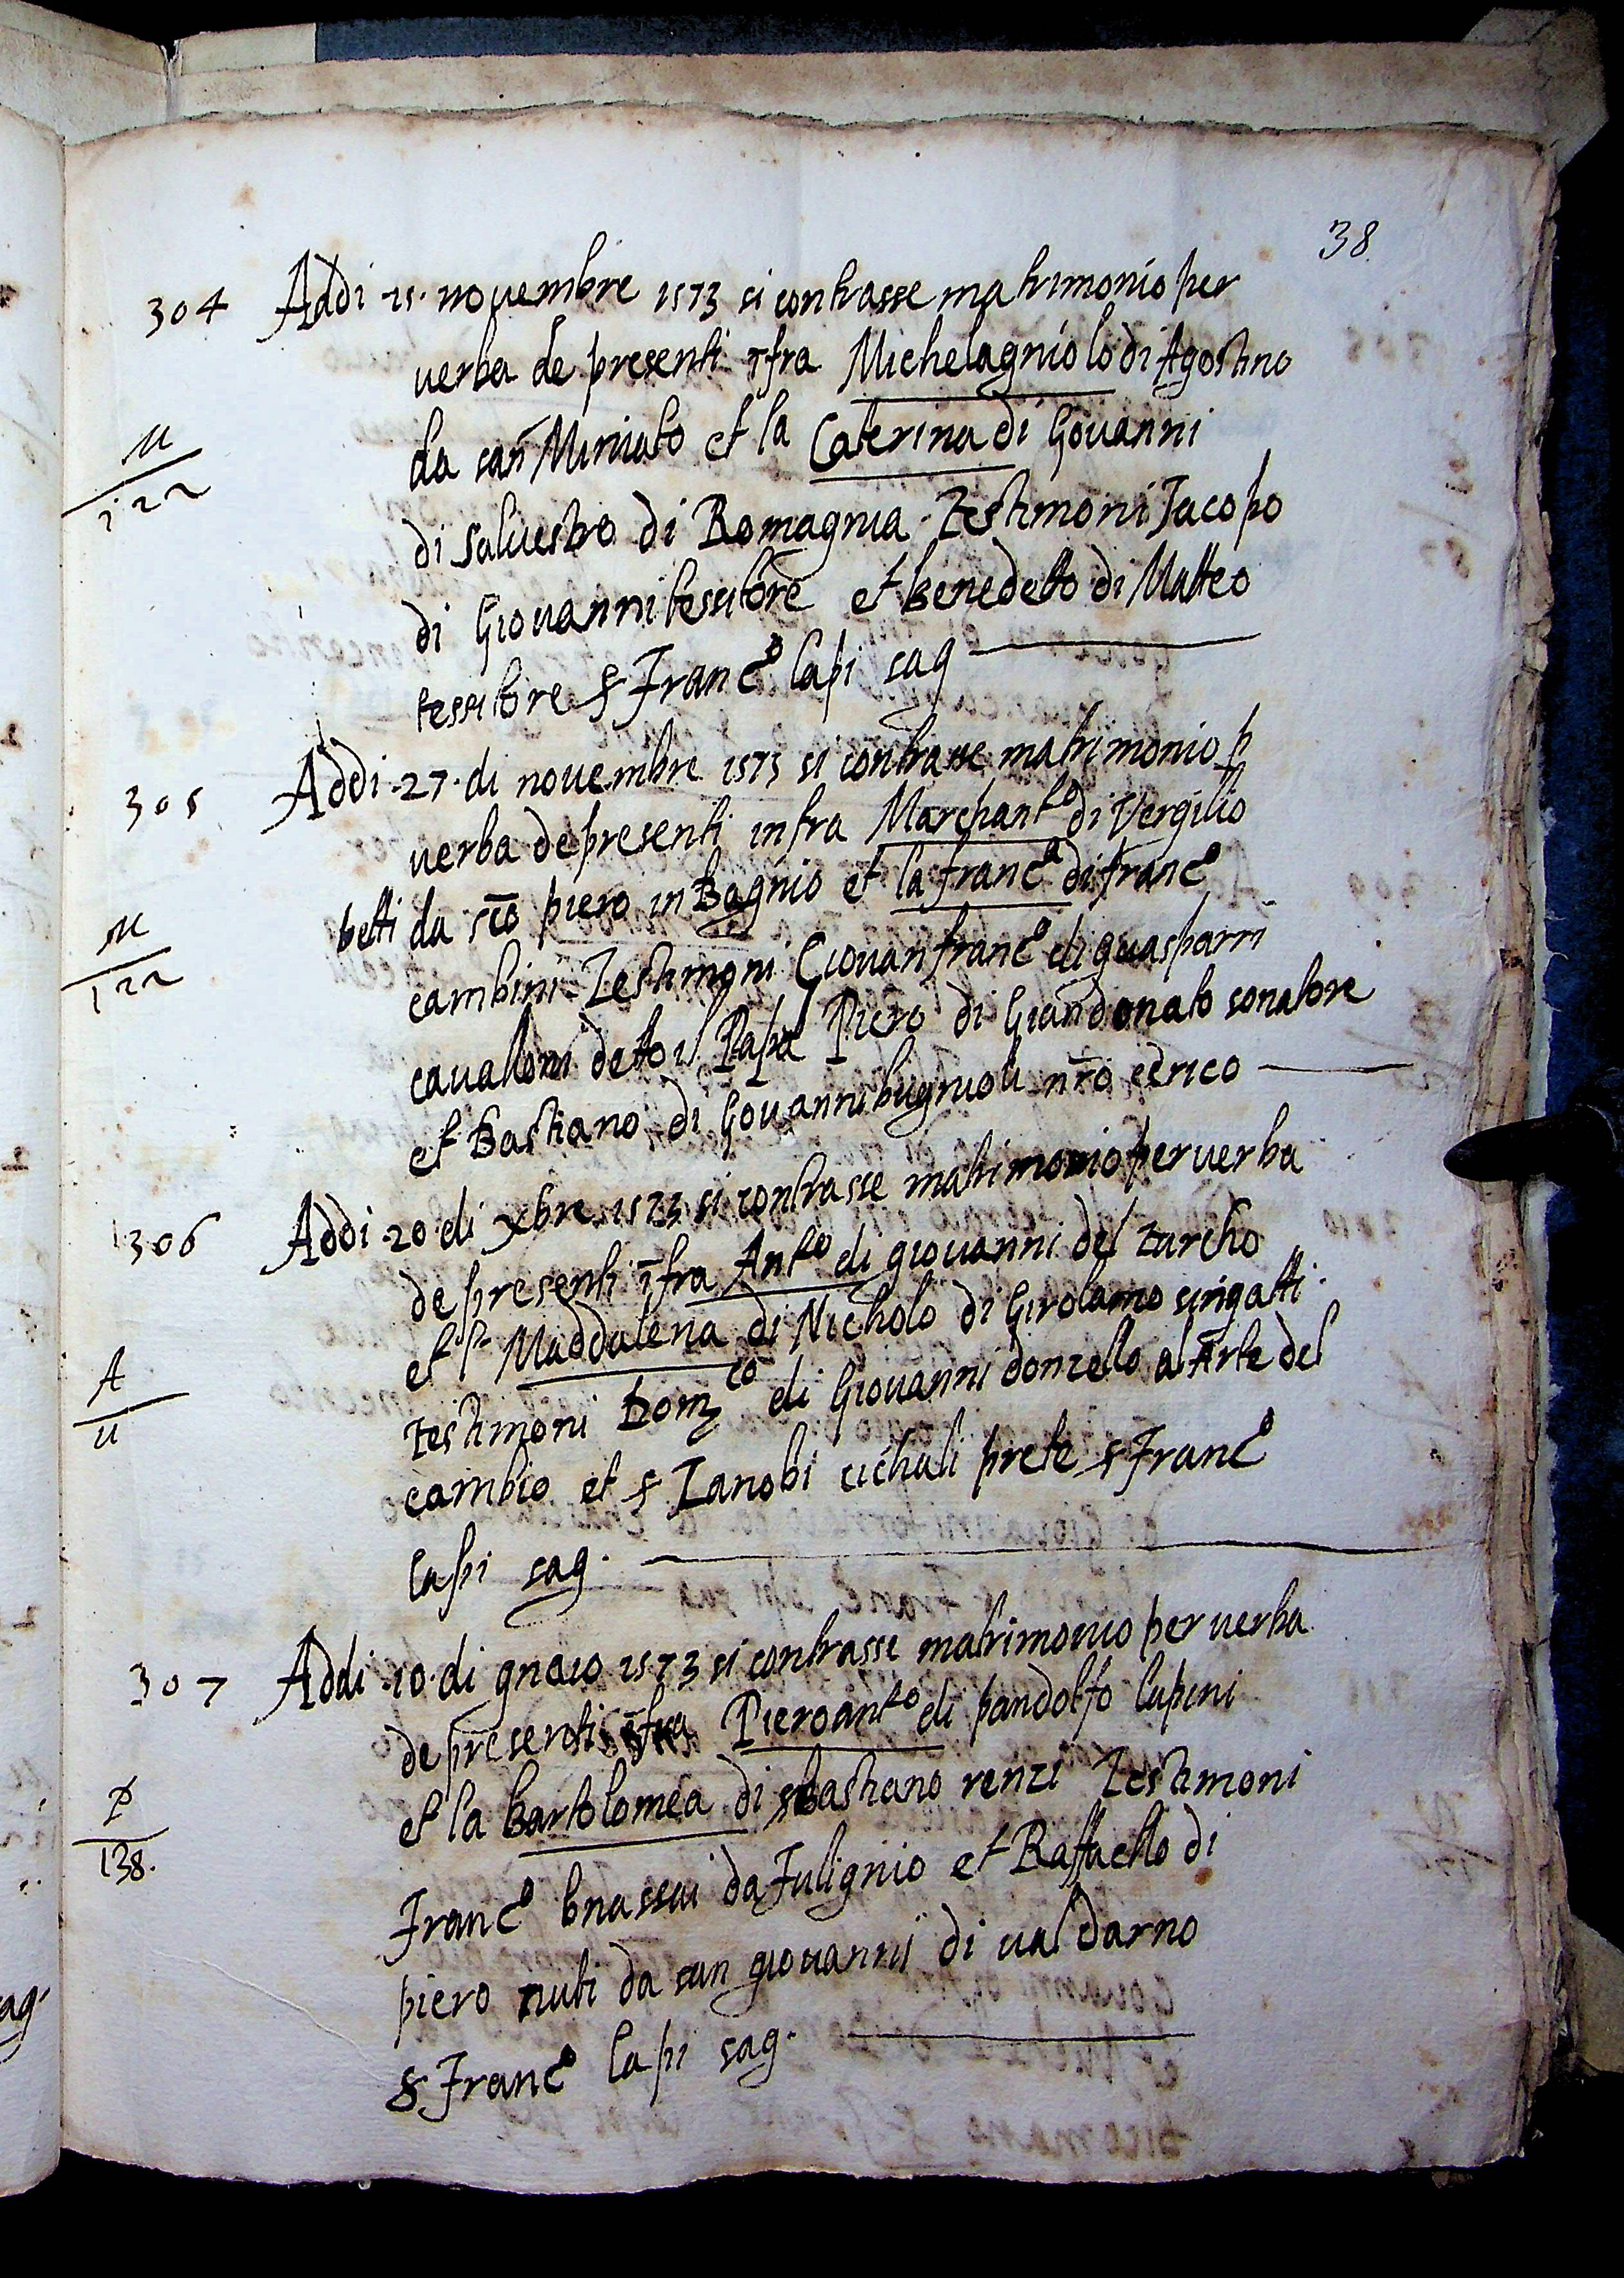 38
304 Addi 15 novembre 1573 si contrasse matrimonio per
verba de presenti ĩfra Michelagniolo di Agostino
da san Miniato et la Caterina di Giovanni
M
122
di Salvestro di Romagnia. Testimoni Jacopo
di Giovanni tessitore et Benedetto di Matteo
tessitore Franc° lapi sag
305 Addi 27 di novembre 1573 si contrasse matrimonio p
verba de presenti infra Marchant° di Vergilio
betti da sto piero in Bagnio et la franca di franc°
M
122
cambini Testimoni Giovanfranc° di guasparri
cavalloni detto il Papa Piero di Giandonato sonatore
et Bastiano di Giovanni bugnioli nro cerico
306 Addi 20 di xbre 1573 si contrasse matrimonio per verba
de presenti ĩfra Anto di giovanni del turcho
et la Maddalena di Nicholo di Girolamo sirigatti
A
11
testimoni Domco di Giovanni donzello al Arte del
cambio et Zanobi cichali prete Franc°
lapi sag.
307 Addi 10 di gnaio 1573 si contrasse matrimonio per verba
de presenti Pieroanto di pandolfo lupini
et la Bartolomea di sbastiano renzi Testimoni
P
138.
Franc° da Fulignio et Raffaello di
piero nuti da san giovanni di valdarno
Franc° lapi sag.